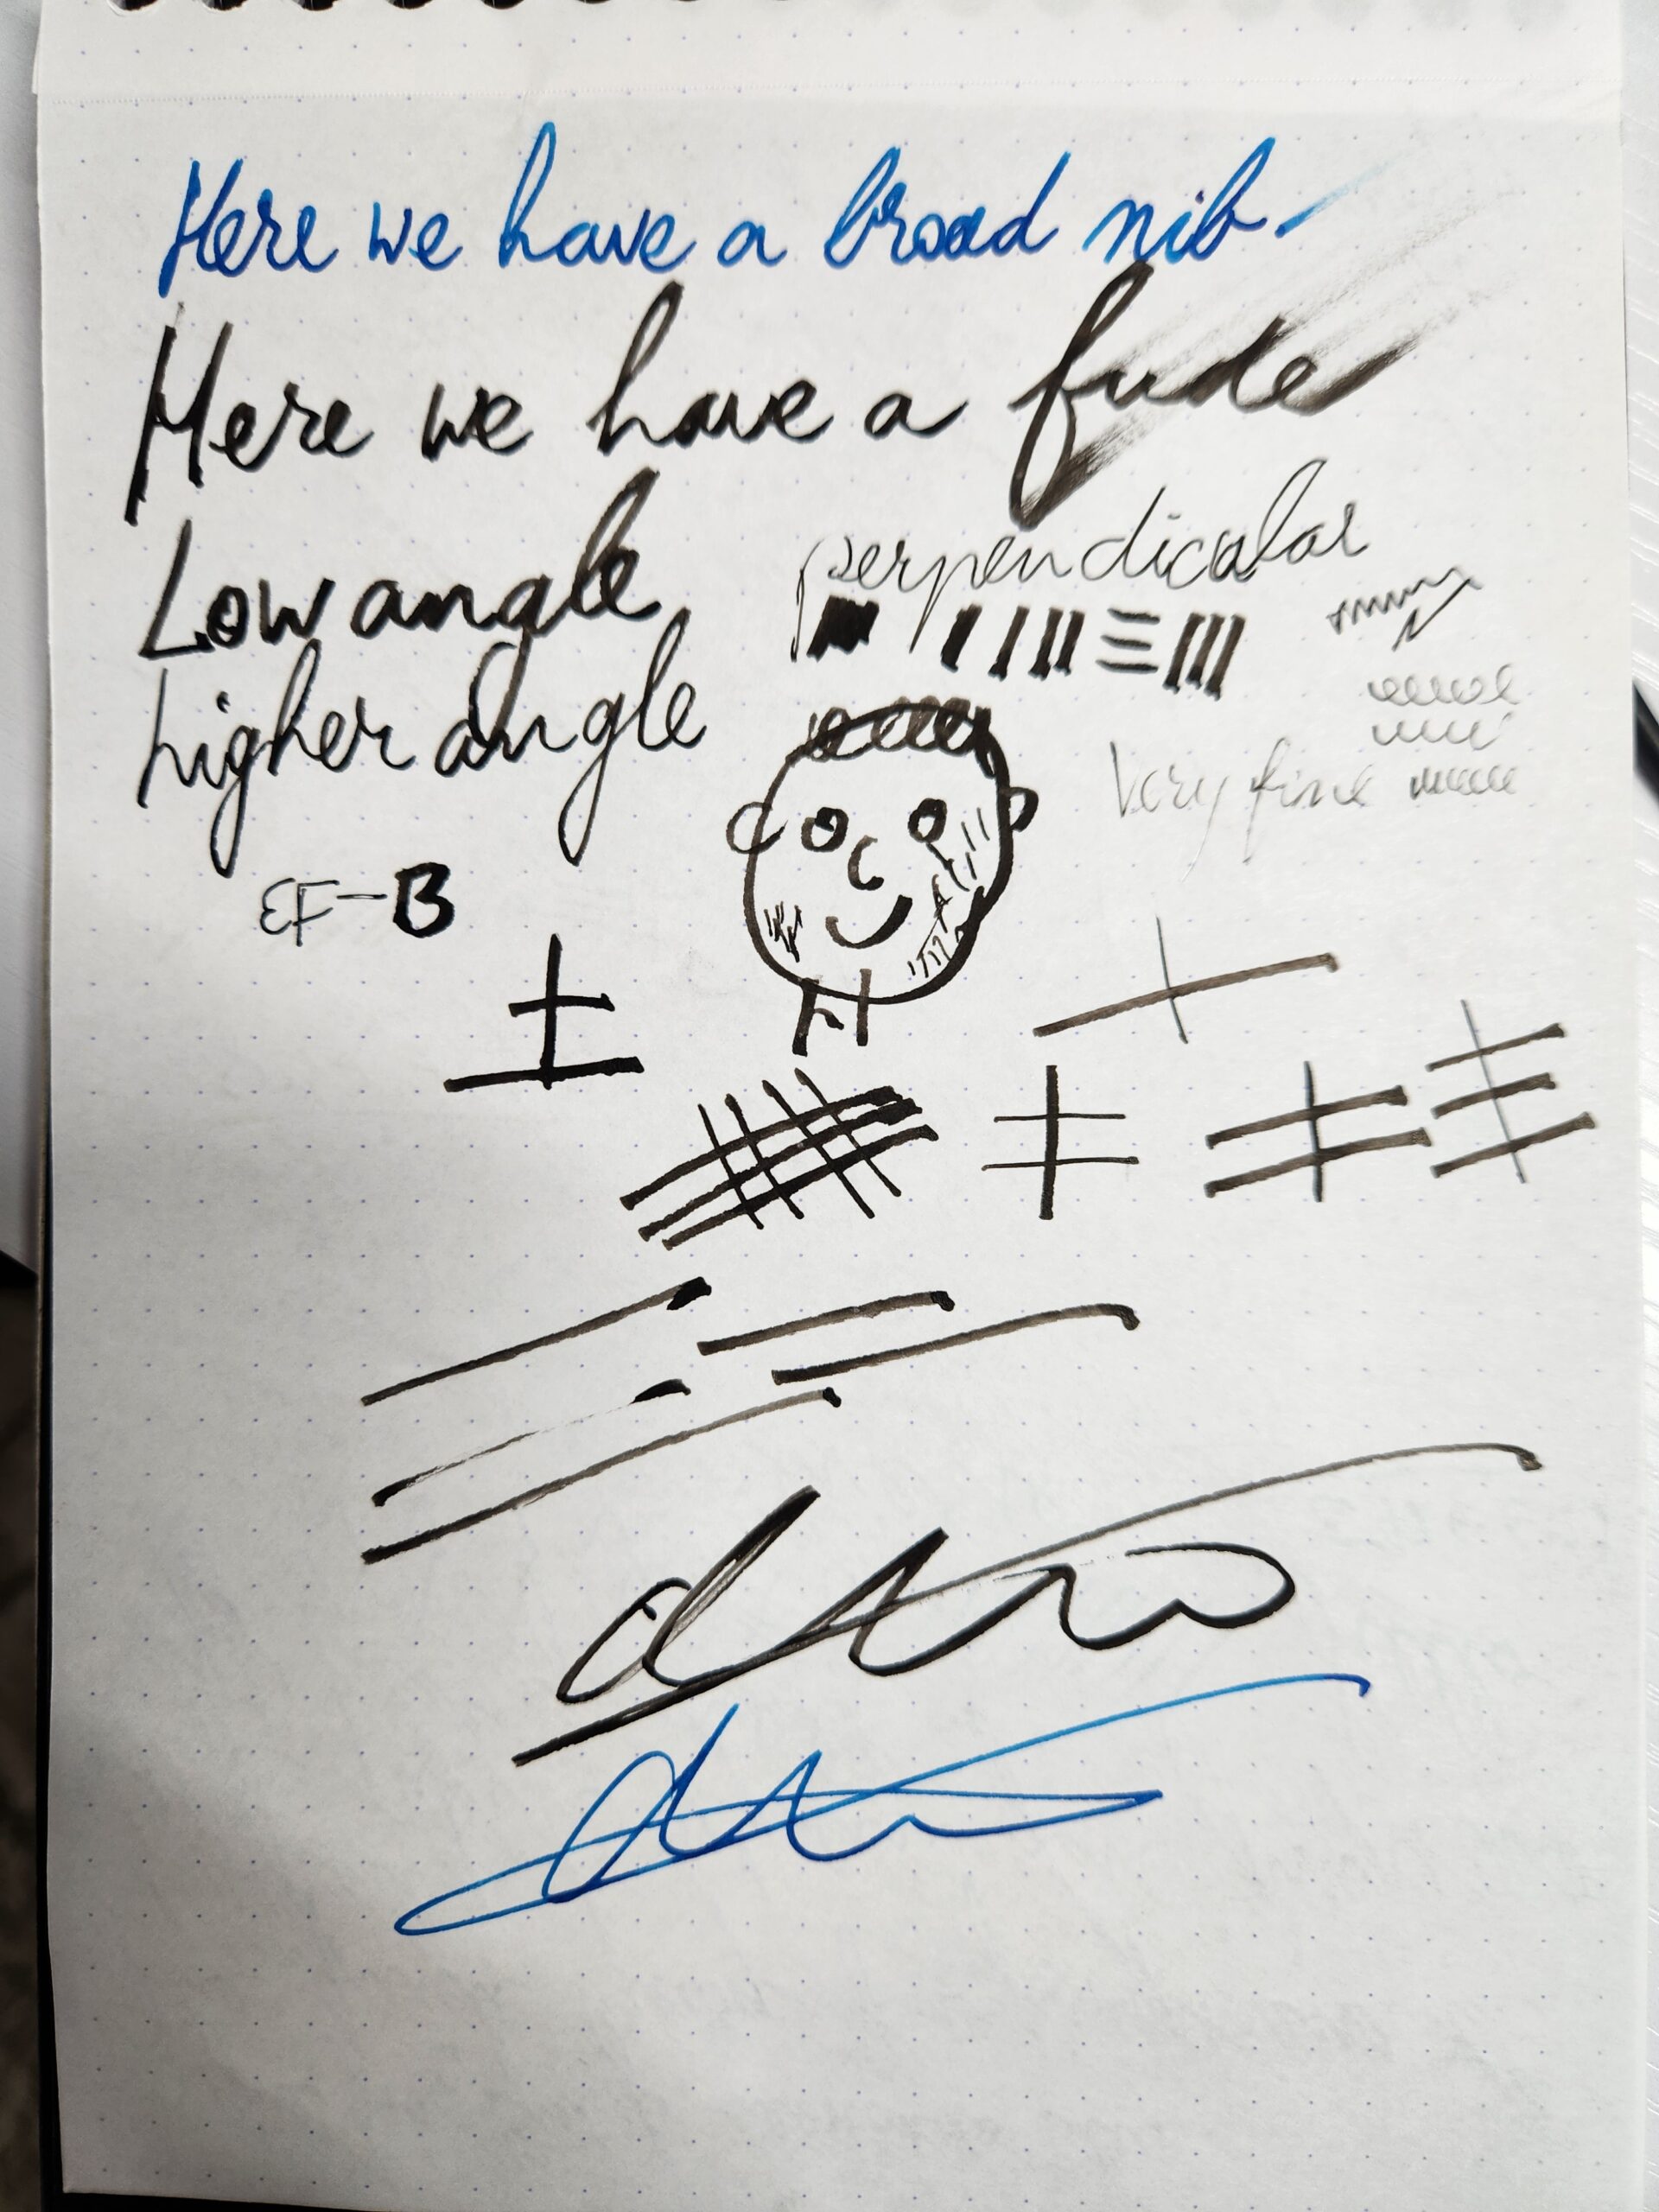 Here we have a broad nib-
Here we have a fude
Low angle
perpendicular
higher angle
Very fine
EF-B